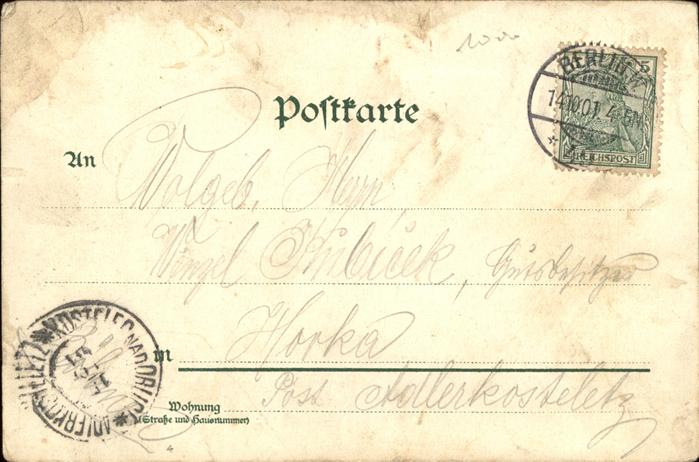 1000
Postkarte
BERLIN. W
14.10.01. 4-5N.
5
REICHSPOST
An
Wolgeb. Herrn,
Wenzel Kubiček, Gutsbesitzer
Horka
in
Post Adlerkosteletz
Wohnung
(Straße und Hausnummer)
KOSTELEC NAD ORLICÍ
ADLERKOSTELETZ